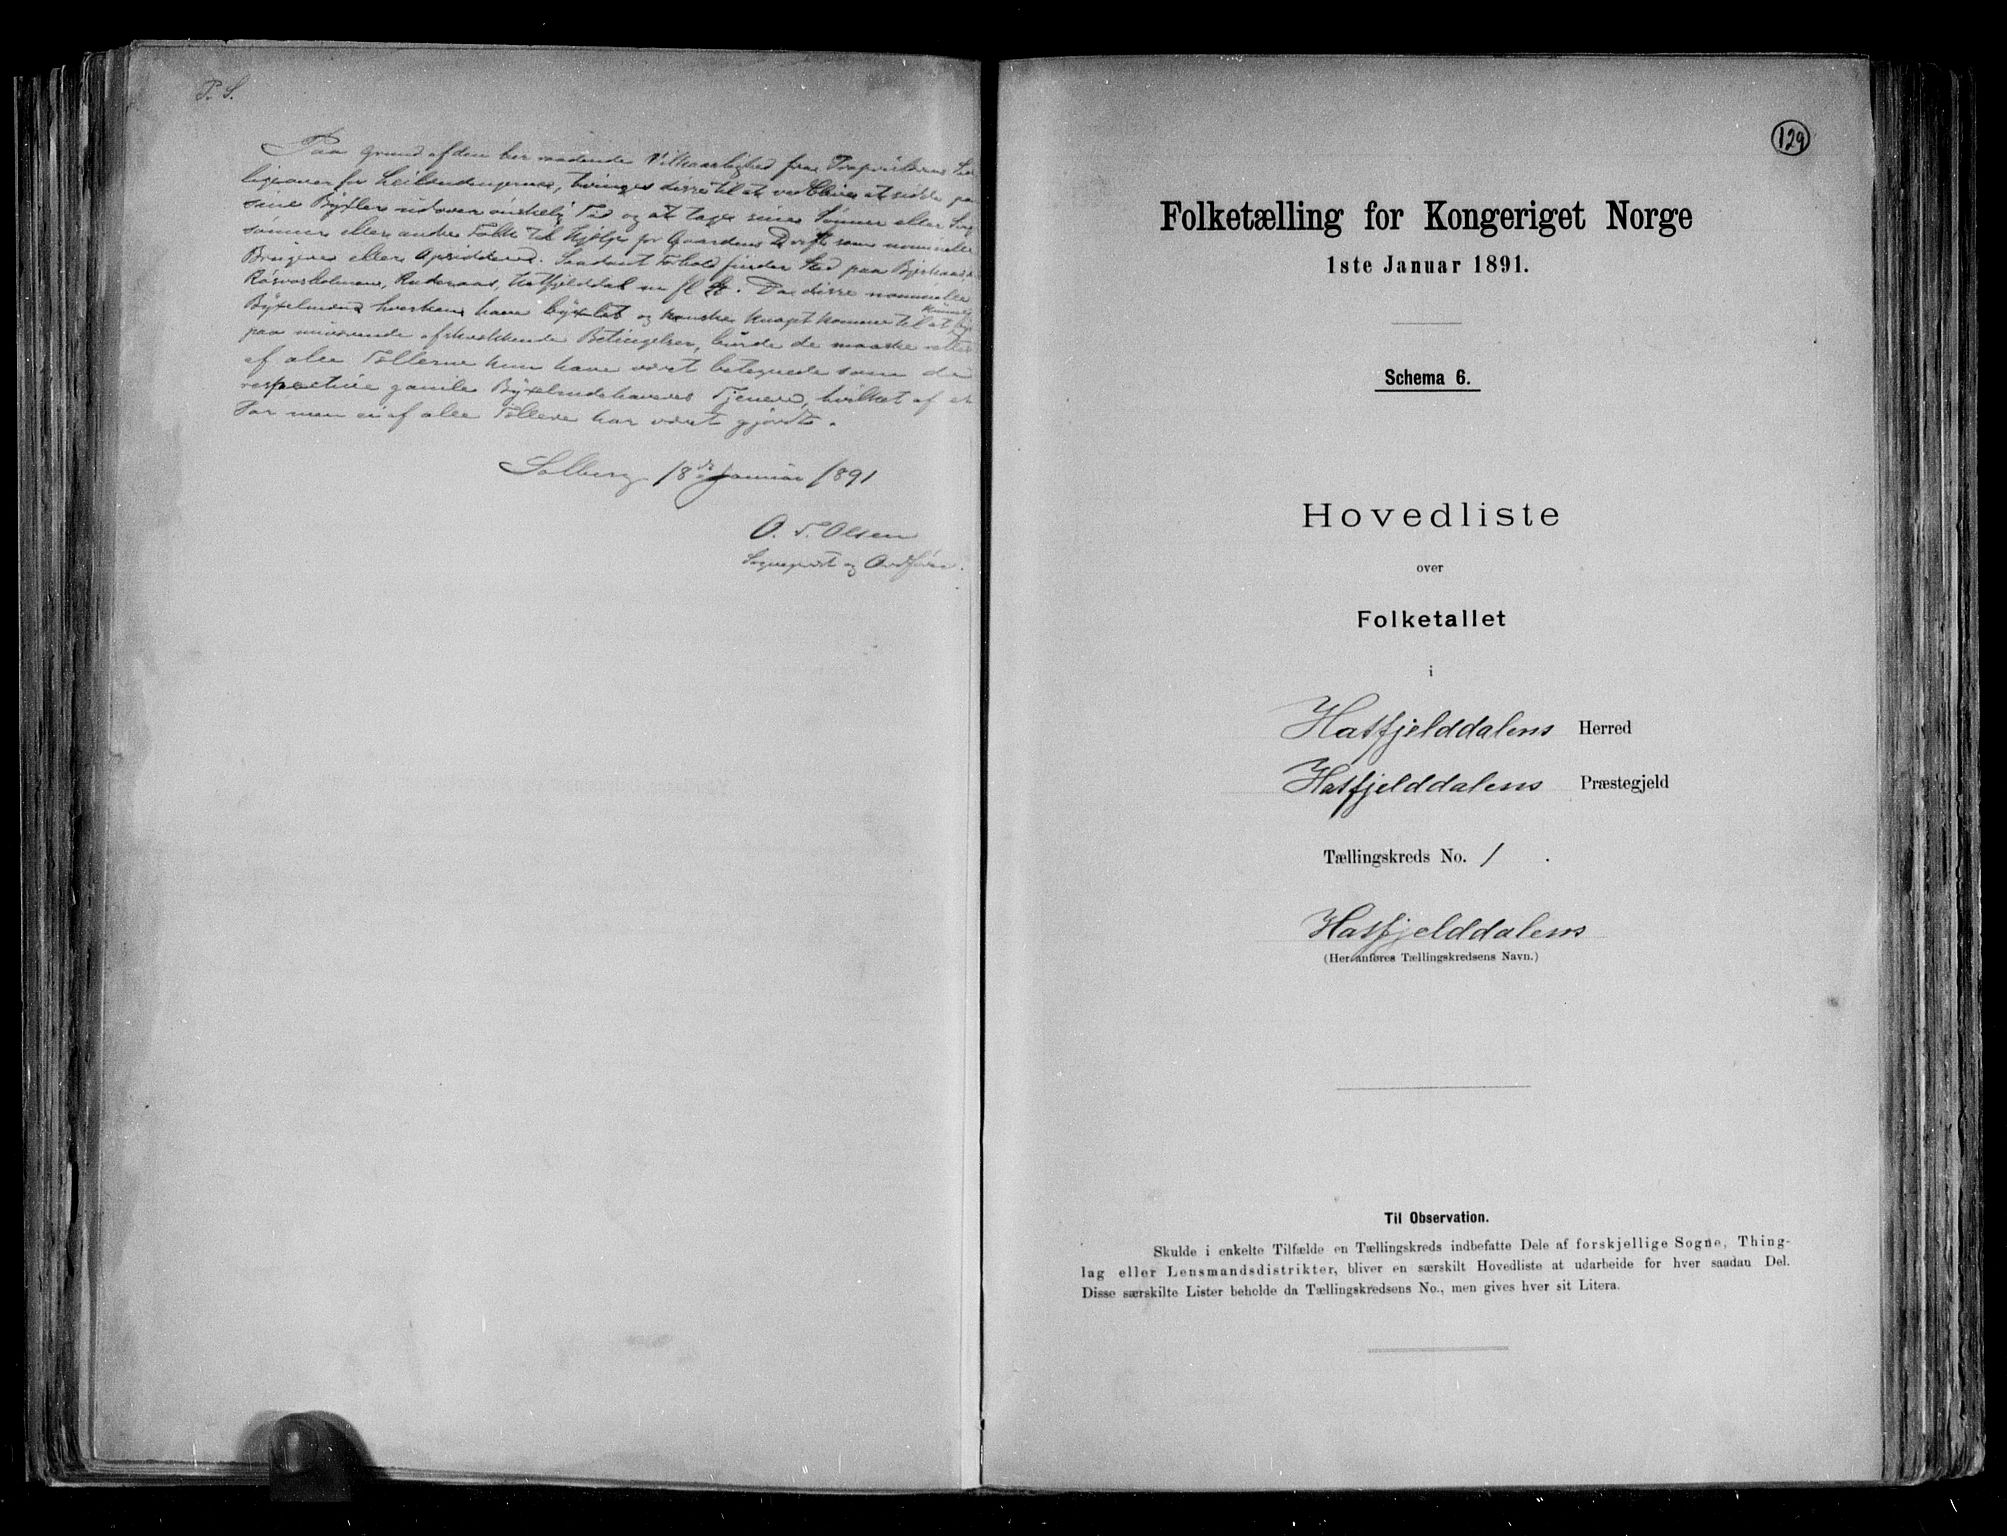 P. S.
Paa Grund af den her raadende Vilkaarlighed fra Proprietærens
for Leilændingerne, tvinges disse til at ved Blive at sidde paa
sine Bøxler udover ønskelig Tid og at tage sine Sønner eller
sønner eller andre Folk til Hjælp for Gaardens Drift som nominelle
Brugere eller Opsiddere. Saadant Forhold finder Sted paa
Røsvasholmen, Hatfjelddal m fl St. Da disse nominelle
Bøxelmænd hverken have bøxlet og kanske knapt kommer til at
paa nuværende afskrækkende Betingelser, burde de maaske rettest
af alle Tællerne kun have været betegnede som de
respective gamle Bøxelindehaveres Tjenere, hvilket af et
Par men ei af alle Tællere har været gjordt.
Solberg 18de Januar 1891
O. T. Olsen
Sogneprest og Ordfører.
129
Folketælling for Kongeriget Norge
1ste Januar 1891.
Schema 6.
Hovedliste
over
Folketallet
i
Hatfjelddalens Herred
Hatfjelddalens Præstegjeld
Tællingskreds No. 1 .
Hatfjelddalens
(Her anføres Tællingskredsens Navn.)
Til Observation.
Skulde i enkelte Tilfælde en Tællingskreds indbefatte Dele af forskjellige Sogne, Thing-
lag eller Lensmandsdistrikter, bliver en særskilt Hovedliste at udarbeide for hver saadan Del.
Disse særskilte Lister beholde da Tællingskredsens No., men gives hver sit Litera.